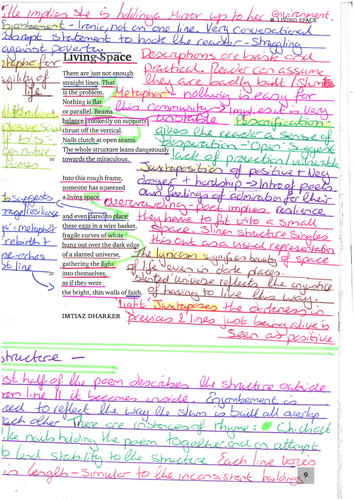 He implies she is holding a mirror up to her environment.
LIVING SPACE
Enjambement - Ironic, not on one line. Very conversational
abrupt statement to hook the reader - struggling
against poverty.
Living Space
Descriptions are bleak and
practical. Reader can assume
they are badly built / slums
There are just not enough
straight lines. That
is the problem.
Nothing is flat
or parallel. Beams
balance crookedly on supports
thrust off the vertical.
Nails clutch at open seams.
The whole structure leans dangerously
towards the miraculous.
Metaphor - nothing is easy for
this community → Implies its very
unstable
Personification
gives the reader a sense of
desperation - 'Open' suggests
lack of protection / vulnerable
Juxtaposition of positive + neg
danger + hardship → intro of poets
own feelings of admiration for their
Into this rough frame,
someone has squeezed
a living space
overcrowding - Place implies resilience
they have to fit into a small
space. 3 liner structure singles
this out as a visual representation
of space
and even dared to place
these eggs in a wire basket,
fragile curves of white
hung out over the dark edge
of a slanted universe,
gathering the light
into themselves,
as if they were
the bright, thin walls of faith.
The lyricism signifies beauty
of life even in dark places.
Slanted universe reflects the injustice
of having to live this way.
'Light' Juxtaposes the darkness in
previous 2 lines just being alive is
seen as positive
IMTIAZ DHARKER
structure -
half of the poem describes the structure outside
line 11 it becomes inside. Enjambement is
used to reflect the way the slum is built all overlap
each other There are instances of rhyme:
nails holding the poem together and an attempt
to lend stability to the structure. Each line varies
in length - similar to the inconsistent buildings
9